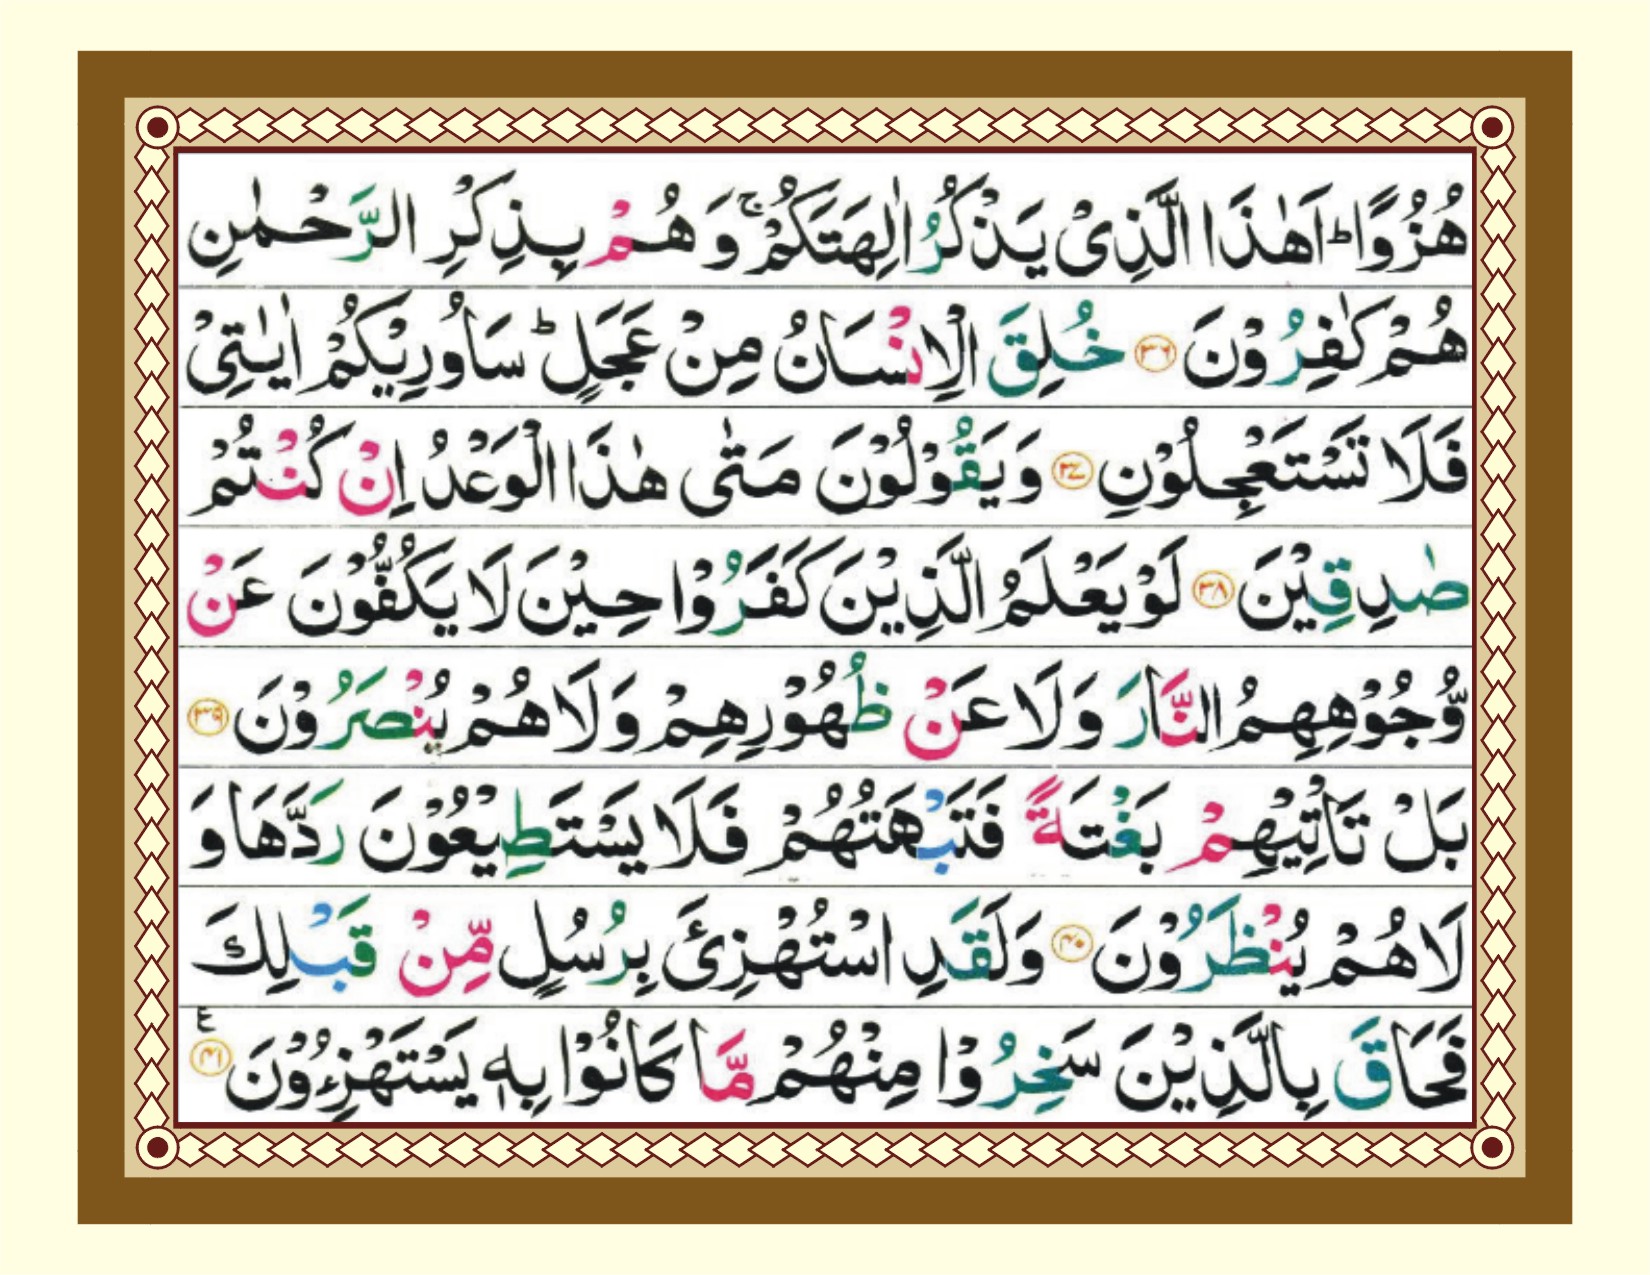 هُزُوًا ؕ اَهٰذَا الَّذِیْ یَذْكُرُ اٰلِهَتَكُمْ ۚ وَ هُمْ بِذِكْرِ الرَّحْمٰنِ
هُمْ كٰفِرُوْنَ ﴿۳۶﴾ خُلِقَ الْاِنْسَانُ مِنْ عَجَلٍ ؕ سَاُورِیْكُمْ اٰیٰتِیْ
فَلَا تَسْتَعْجِلُوْنِ ﴿۳۷﴾ وَیَقُوْلُوْنَ مَتٰی هٰذَا الْوَعْدُ اِنْ كُنْتُمْ
صٰدِقِیْنَ ﴿۳۸﴾ لَوْ یَعْلَمُ الَّذِیْنَ كَفَرُوْا حِیْنَ لَا یَكُفُّوْنَ عَنْ
وُّجُوْهِهِمُ النَّارَ وَلَا عَنْ ظُهُوْرِهِمْ وَلَا هُمْ یُنْصَرُوْنَ ﴿۳۹﴾
بَلْ تَاْتِیْهِمْ بَغْتَةً فَتَبْهَتُهُمْ فَلَا یَسْتَطِیْعُوْنَ رَدَّهَا وَ
لَا هُمْ یُنْظَرُوْنَ ﴿۴۰﴾ وَلَقَدِ اسْتُهْزِئَ بِرُسُلٍ مِّنْ قَبْلِكَ
فَحَاقَ بِالَّذِیْنَ سَخِرُوْا مِنْهُمْ مَّا كَانُوْا بِهٖ یَسْتَهْزِءُوْنَ ﴿۴۱﴾ ع